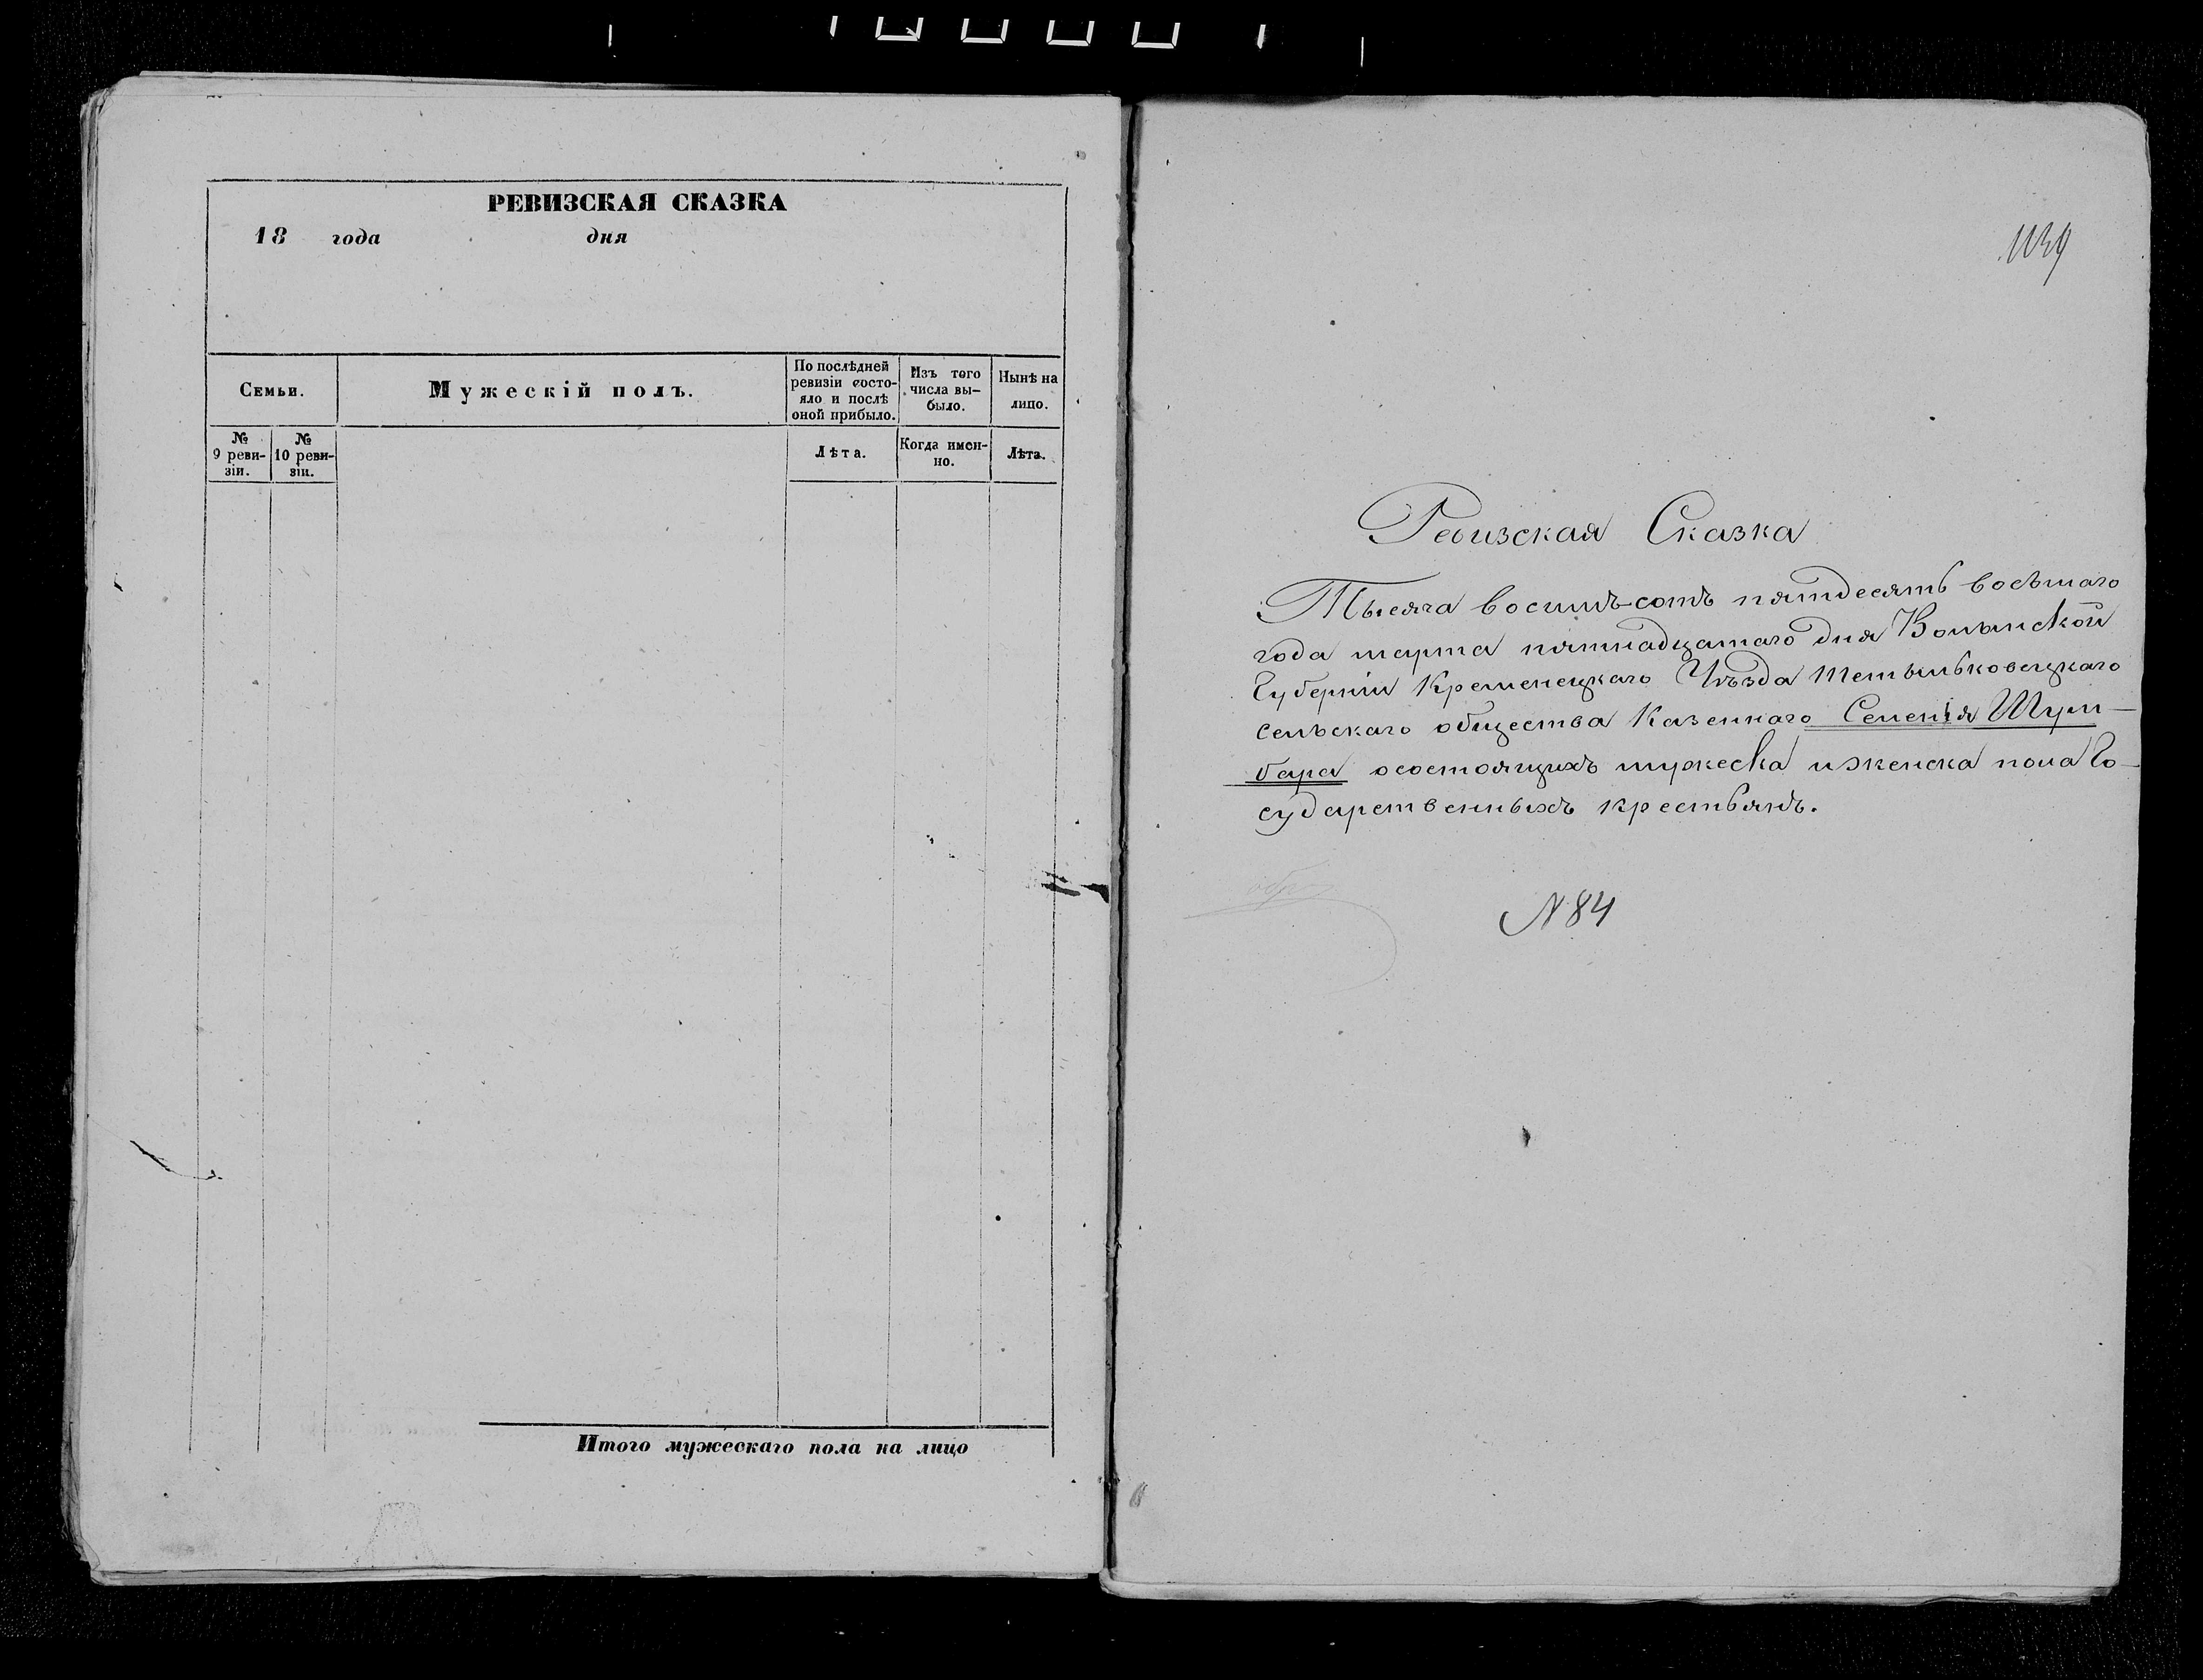 РЕВИЗСКАЯ СКАЗКА
18 года дня
Семьи.
Мужескій полъ.
По послѣдней
ревизіи состо-
яло и послѣ
оной прибыло.
Изъ того
числа вы-
было.
Нынѣ на
лицо.
№
9 реви-
зіи.
№
10 реви-
зіи.
Лѣта.
Когда имен-
но.
Лѣта.
Итого мужескаго пола на лицо
1139
Ревизская Сказка
Тысяча восимъ-сотъ пятдесять восьмаго
года марта пятнадцатаго дня Волынской
Губерніи Кременецкаго Уѣзда Тетыльковецкаго
сельскаго общества Казеннаго Селенія Шум-
бара осостоящихъ мужеска и женска пола Го-
сударственныхъ крестьянъ.
N 84